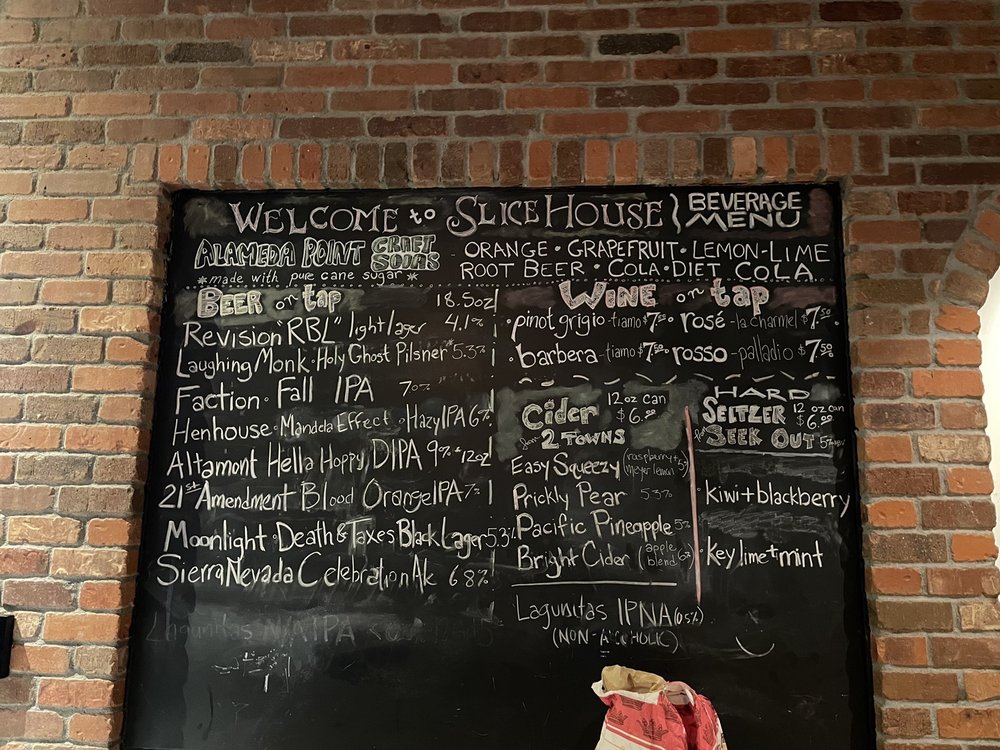 WELCOME to SLICE HOUSE BEVERAGE MENU
ALAMEDA POINT CRAFT SODAS
*made with pure cane sugar*
ORANGE • GRAPEFRUIT • LEMON-LIME
ROOT BEER • COLA • DIET COLA
BEER on tap 18.5oz
Revision "RBL" light lager 4.1%
Laughing Monk • Holy Ghost Pilsner 5.3%
Faction • Fall IPA 7.0%
Henhouse • Mandela Effect • Hazy IPA 6%
Altamont Hella Hoppy DIPA 9% 12oz
21st Amendment Blood Orange IPA 7%
Moonlight • Death & Taxes Black Lager 5.3%
Sierra Nevada Celebration Ale 6.8%
Lagunitas N/A IPA
WINE on tap
• pinot grigio - tiamo $7.50
• rosé - la charmel $7.50
• barbera - tiamo $7.50
• rosso - palladio $7.50
Cider 12 oz can $6.00
from 2 TOWNS
Easy Squeezy (raspberry + meyer lemon)
Prickly Pear 5.3%
Pacific Pineapple 5%
Bright Cider (apple blend) 6%
HARD
SELTZER 12 oz can $6.00
SEEK OUT
• kiwi + blackberry
• key lime + mint
Lagunitas IPNA (0.5%)
(NON-ALCOHOLIC)